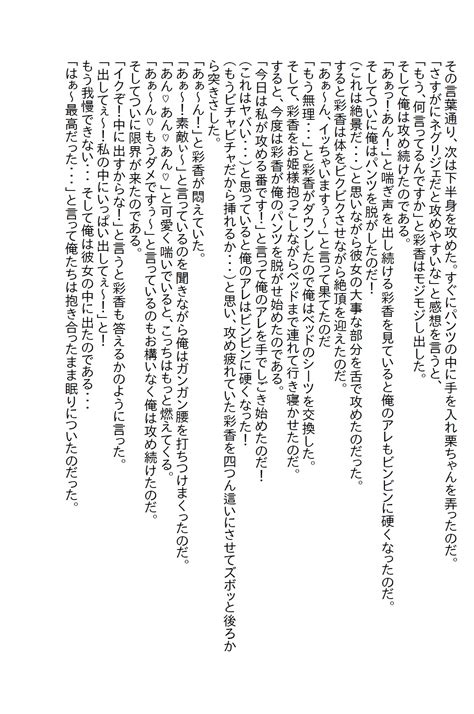 その言葉通り、次は下半身を攻めた。すぐにパンツの中に手を入れ栗ちゃんを弄ったのだ。
「さすがにネグリジェだと攻めやすいな」と感想を言うと、
「もう、何言ってるんですか」と彩香はモジモジし出した。
そして俺は攻め続けたのである。
「あぁっ!あん!」と喘ぎ声を出し続ける彩香を見ていると俺のアレもビンビンに硬くなったのだ。
そしてついに俺はパンツを脱がしたのだ!
(これは絶景だ・・)と思いながら彼女の大事な部分を舌で攻めたのだった。
すると彩香は体をビクビクさせながら絶頂を迎えたのだ。
「あぁ~ん、イッちゃいますぅ~」と言って果てたのだ。
「もう無理・・・」と彩香がダウンしたので俺はベッドのシーツを交換した。
そして、彩香をお姫様抱っこしながらベッドまで連れて行き寝かせたのだ。
すると、今度は彩香が俺のパンツを脱がせ始めたのである。
「今日は私が攻める番です!」と言って俺のアレを手でしごき始めたのだ!
(これはヤバい・・)と思っていると俺のアレはビンビンに硬くなった!
(もうビチャビチャだから挿れるか・・)と思い、攻め疲れていた彩香を四つん這いにさせてズボッと後ろか
ら突きさした。
「あぁ~ん!」と彩香が悶えていた。
「あぁ~!素敵ぃ~」と言っているのを聞きながら俺はガンガン腰を打ちつけまくったのだ。
「あん♡あん♡あん♡」と可愛く喘いでいると、こっちはもっと燃えてくる。
「あぁ~ん♡もうダメですぅ~」と言っているのもお構いなく俺は攻め続けたのだ。
そしてついに限界が来たのである。
「イクぞ!中に出すからな!」と言うと彩香も答えるかのように言った。
「出してぇ~!私の中にいっぱい出してぇ~!」と!
もう我慢できない・・・そして俺は彼女の中に出したのである・・・
「はぁ~最高だった・・・」と言って俺たちは抱き合ったまま眠りについたのだった。